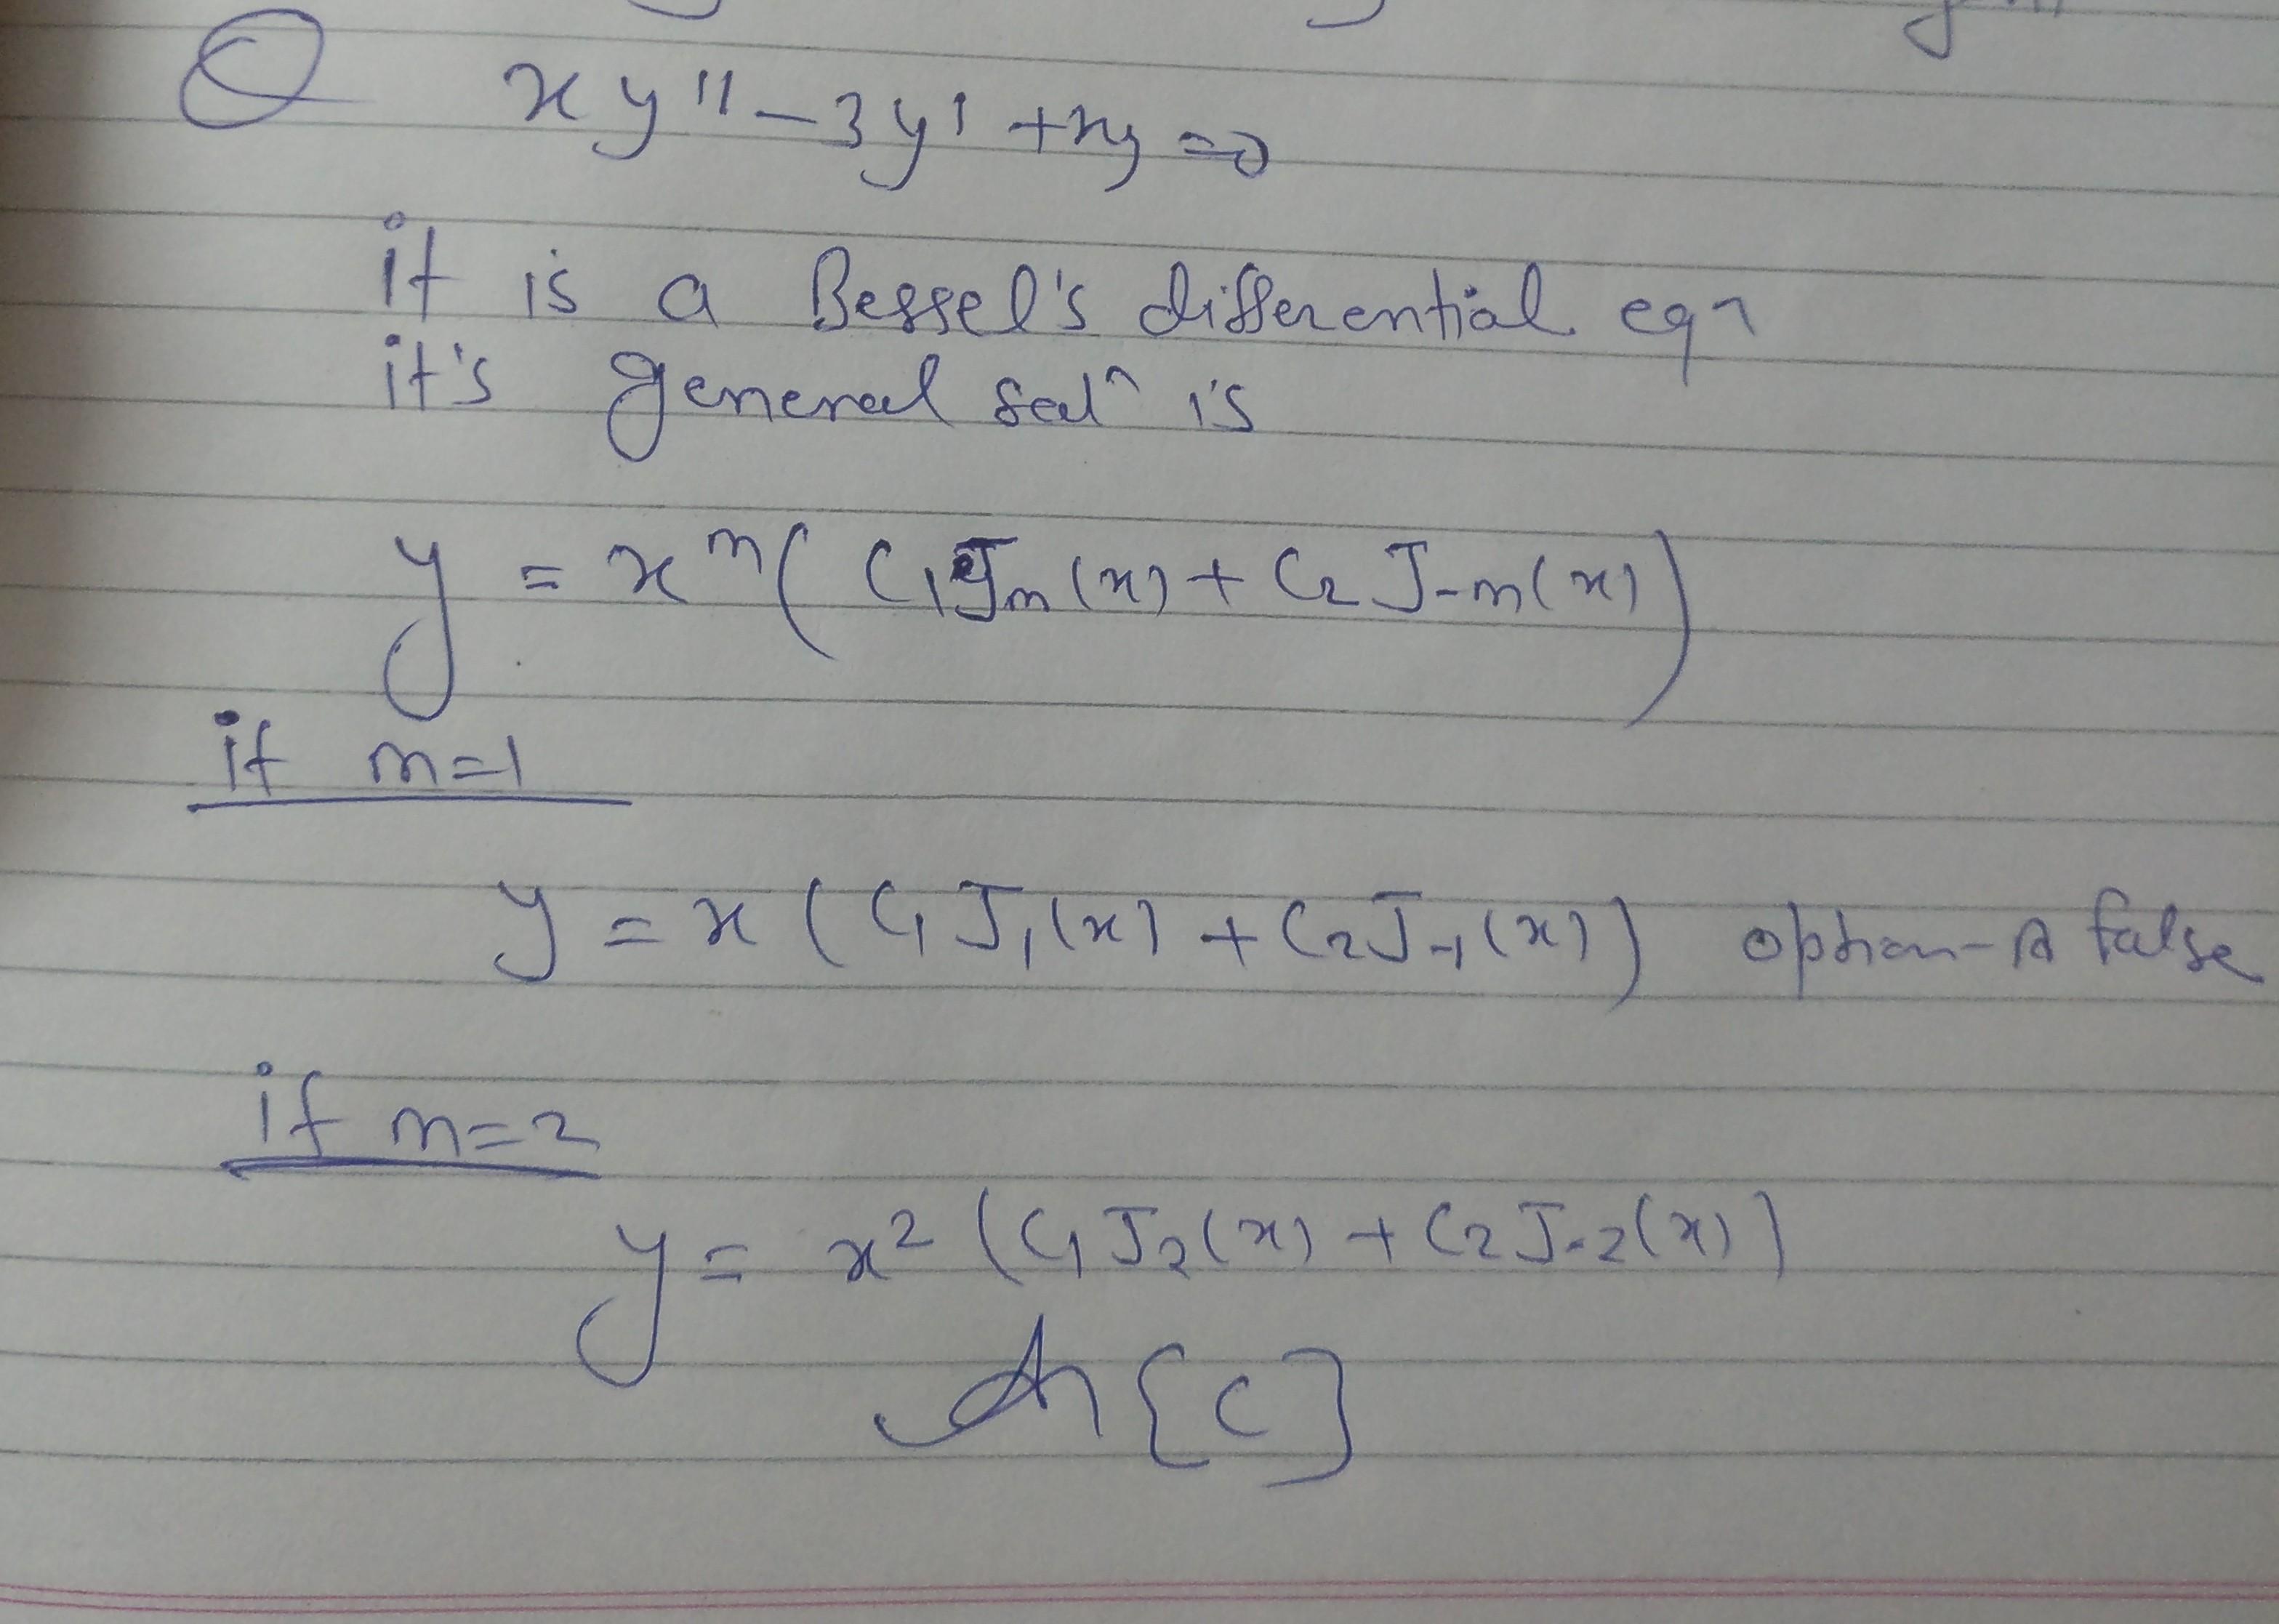 Q xy'' - 3y' + xy = 0
it is a Bessel's differential eqn
it's general solⁿ is
y = xᵐ( C₁Jm(x) + C₂ J-m(x) )
if m=1
y = x ( C₁ J₁(x) + C₂J-₁(x) ) option-A false
if m=2
y = x² ( C₁ J₂(x) + C₂ J-₂(x) )
{C}